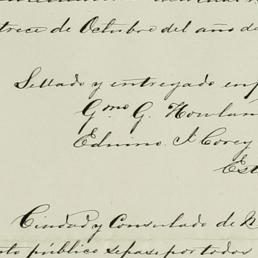 trece de Octubre del año de
Sellado y entregado en p
Gmo G. Howlan
Edwino. J. Corey
Est
Ciudad y Consulado de N
público sepase por todos